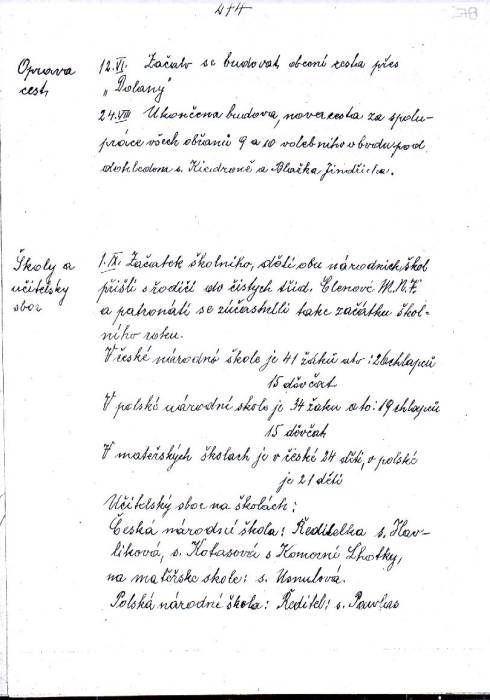 44
78
Oprava
cest
12.VI. Začato se budovat obecní cesta přes
„Dolany"
24.VIII Ukončena budova, nover cesta za spolu-
práce všech občanů 9 a 10 volebního obvodu pod
dohledem s. Kiedroně a Blažka Jindřicha.
Školy a
učitelsky
sbor
1.IX. Začátek školního, dětí obu národních škol
přišli s rodiči do čistych tříd. Členové M.N.V
a patronáti se zúčastnili take začátku škol-
ního roku.
V české národní škole je 41 žáků a to: 26 chlapců
15 děvčat
V polské národní skole je 34 žaku a to: 19 chlapců
15 děvčat
V mateřských školach je v české 24 dětí, v polské
je 21 děti
Učitelský sbor na školách:
Česká národní škola: Ředitelka s. Hav-
líková, s. Kotasová s Komorní Lhotky,
na mateřske skole: s.
Polská národní škola: Ředitel: s. Pawlas